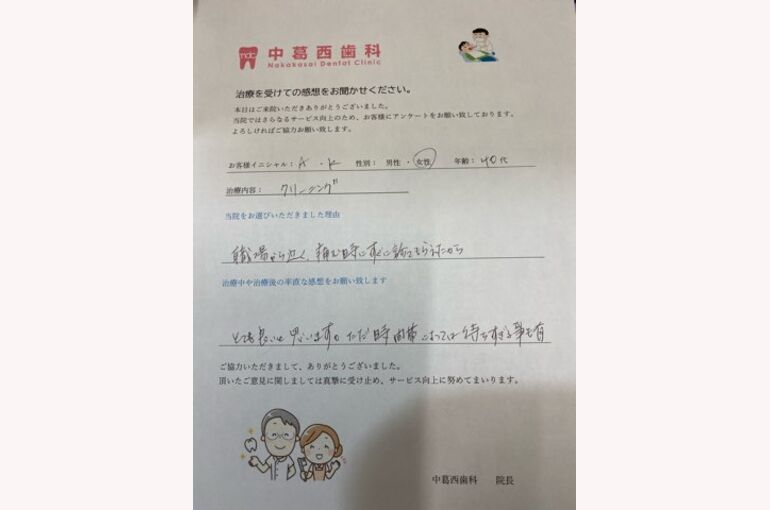 ndc 中葛西歯科
Nakakasai Dental Clinic
治療を受けての感想をお聞かせください。
本日はご来院いただきありがとうございました。
当院ではさらなるサービス向上のため、お客様にアンケートをお願い致しております。
よろしければご協力お願い致します。
お客様イニシャル：A ・K 性別： 男性 ・ 女性 年齢：40 代
治療内容： クリーニング
当院をお選びいただきました理由
職場から近く、痛む時にすぐに診てもらえたから
治療中や治療後の率直な感想をお願い致します
とても良いと思います。ただ時間帯によっては待ちすぎる事も有
ご協力いただきまして、ありがとうございました。
頂いたご意見に関しましては真摯に受け止め、サービス向上に努めてまいります。
中葛西歯科 院長